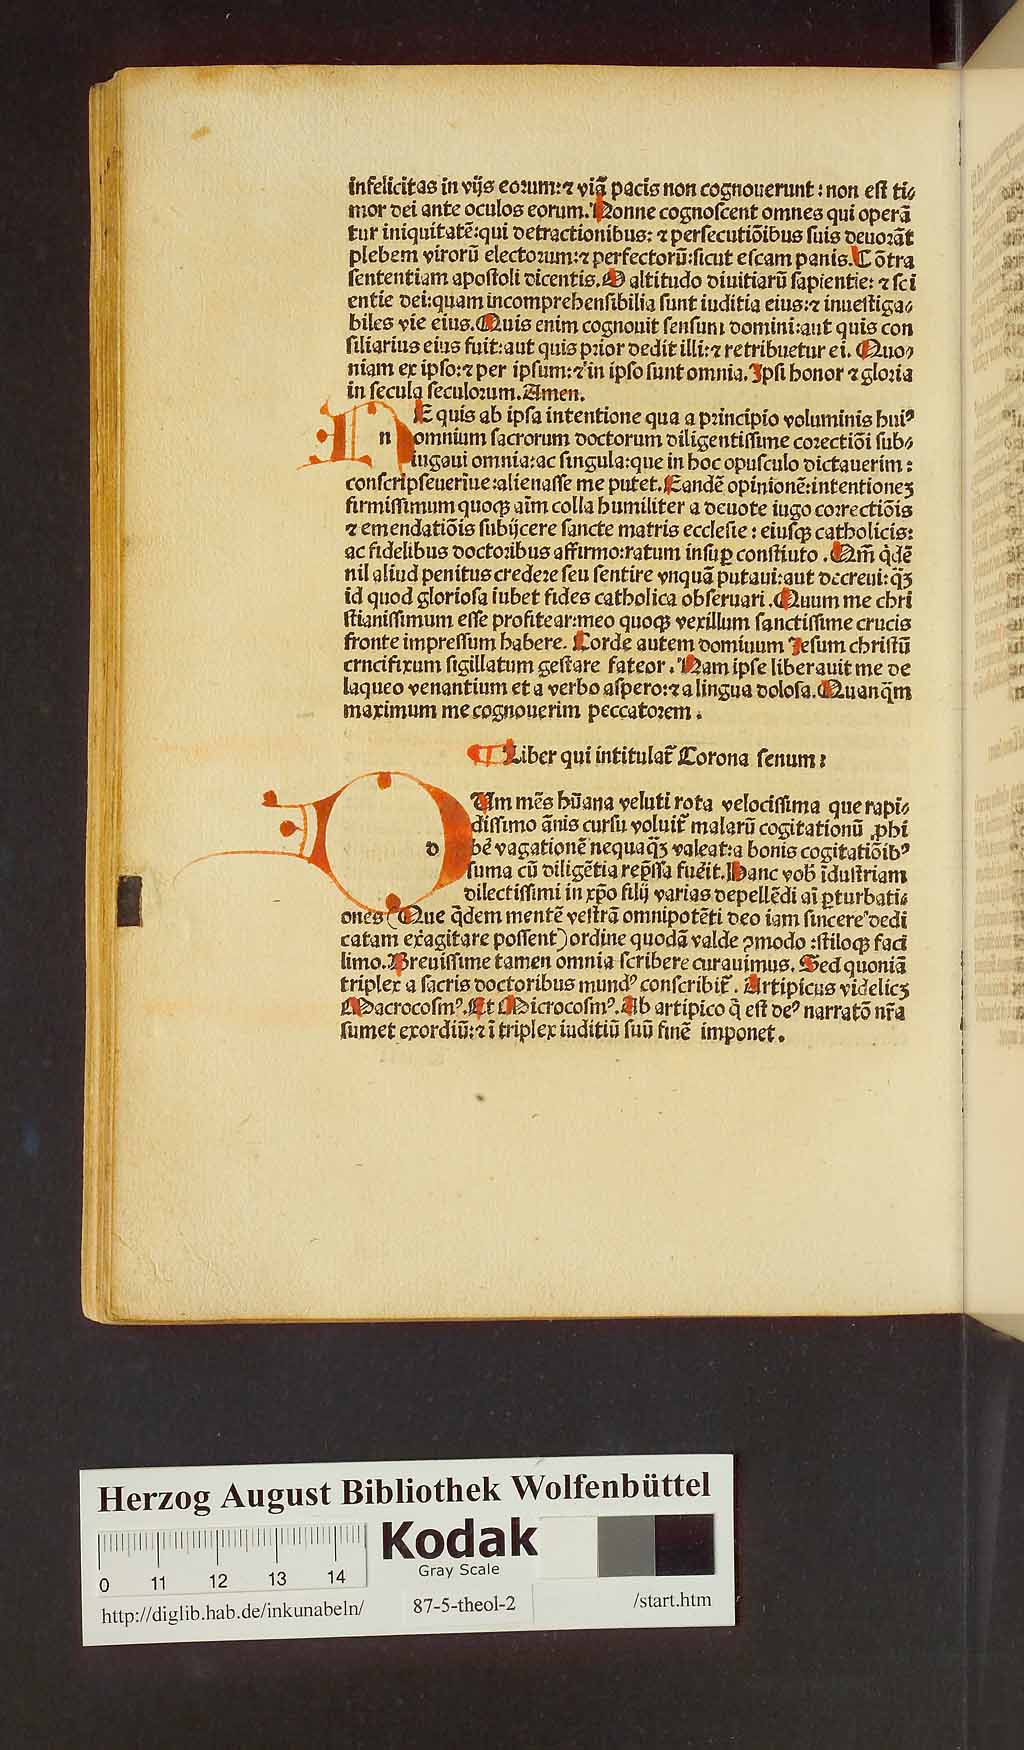 infelicitas in vijs eorum:⁊ viā pacis non cognouerunt: non est ti⸗
mor dei ante oculos eorum. Nonne cognoscent omnes qui operā
tur iniquitatē:qui detractionibus: ⁊ persecutiōibus suis deuorāt
plebem virorū electorum:⁊ perfectorū:sicut escam panis. Cōtra
sententiam apostoli dicentis. O altitudo diuitiarū sapientie: ⁊ sci
entie dei:quam incomprehensibilia sunt iuditia eius:⁊ inuestiga⸗
biles vie eius. Quis enim cognouit sensum domini:aut quis con
siliarius eius fuit:aut quis prior dedit illi:⁊ retribuetur ei. Quo⸗
niam ex ipso:⁊ per ipsum:⁊ in ipso sunt omnia. Ipsi honor ⁊ gloria
in secula seculorum. Amen.
n E quis ab ipsa intentione qua a principio voluminis huiꝰ
omnium sacrorum doctorum diligentissime corectiōi sub⸗
iugaui omnia:ac singula:que in hoc opusculo dictauerim:
conscripseuerīue:alienasse me putet. Eandē opinionē:intentioneꝫ
firmissimum quoqꝫ aīm colla humiliter a deuote iugo correctiōis
⁊ emendatiōis subijcere sancte matris ecclesie: eiusqꝫ catholicis:
ac fidelibus doctoribus affirmo:ratum insuꝑ constiuto. Qm̄ q̄dē
nil aliud penitus credere seu sentire vnquā putaui:aut decreui:q̄ꝫ
id quod gloriosa iubet fides catholica obseruari. Quum me chri
stianissimum esse profitear:meo quoqꝫ vexillum sanctissime crucis
fronte impressum habere. Corde autem dominum Jesum christū
crncifixum sigillatum gestare fateor. Nam ipse liberauit me de
laqueo venantium et a verbo aspero:⁊ a lingua dolosa. Quanq̄m
maximum me cognouerim peccatorem.
¶ Liber qui intitulat̄ Corona senum:
d Um mēs hūana veluti rota velocissima que rapi⸗
dissimo ānis cursu voluit̄ malarū cogitationū ꝓhi
bē vagationē nequaq̄ꝫ valeat:a bonis cogitatiōibꝰ
suma cū diligētia rep̄ssa fuēit. Hanc vob̄ īdustriam
dilectissimi in xp̄o filij varias depellēdi aī ꝑturbati⸗
ones (Que q̄dem mentē vestrā omnipotēti deo iam sincere dedi
catam exagitare possent) ordine quodā valde ꝯmodo :stiloqꝫ faci
limo. Breuissime tamen omnia scribere curauimus. Sed quoniā
triplex a sacris doctoribus mundꝰ conscribit̄. Artipicus videlicꝫ
Macrocosmꝰ. Et Microcosmꝰ. Ab artipico q̄ est deꝰ narratō nr̄a
sumet exordiū:⁊ ī triplex iuditiū suū finē imponet.
Herzog August Bibliothek Wolfenbüttel
Kodak
Gray Scale
0 11 12 13 14
http://diglib.hab.de/inkunabeln/ 87-5-theol-2 /start.htm